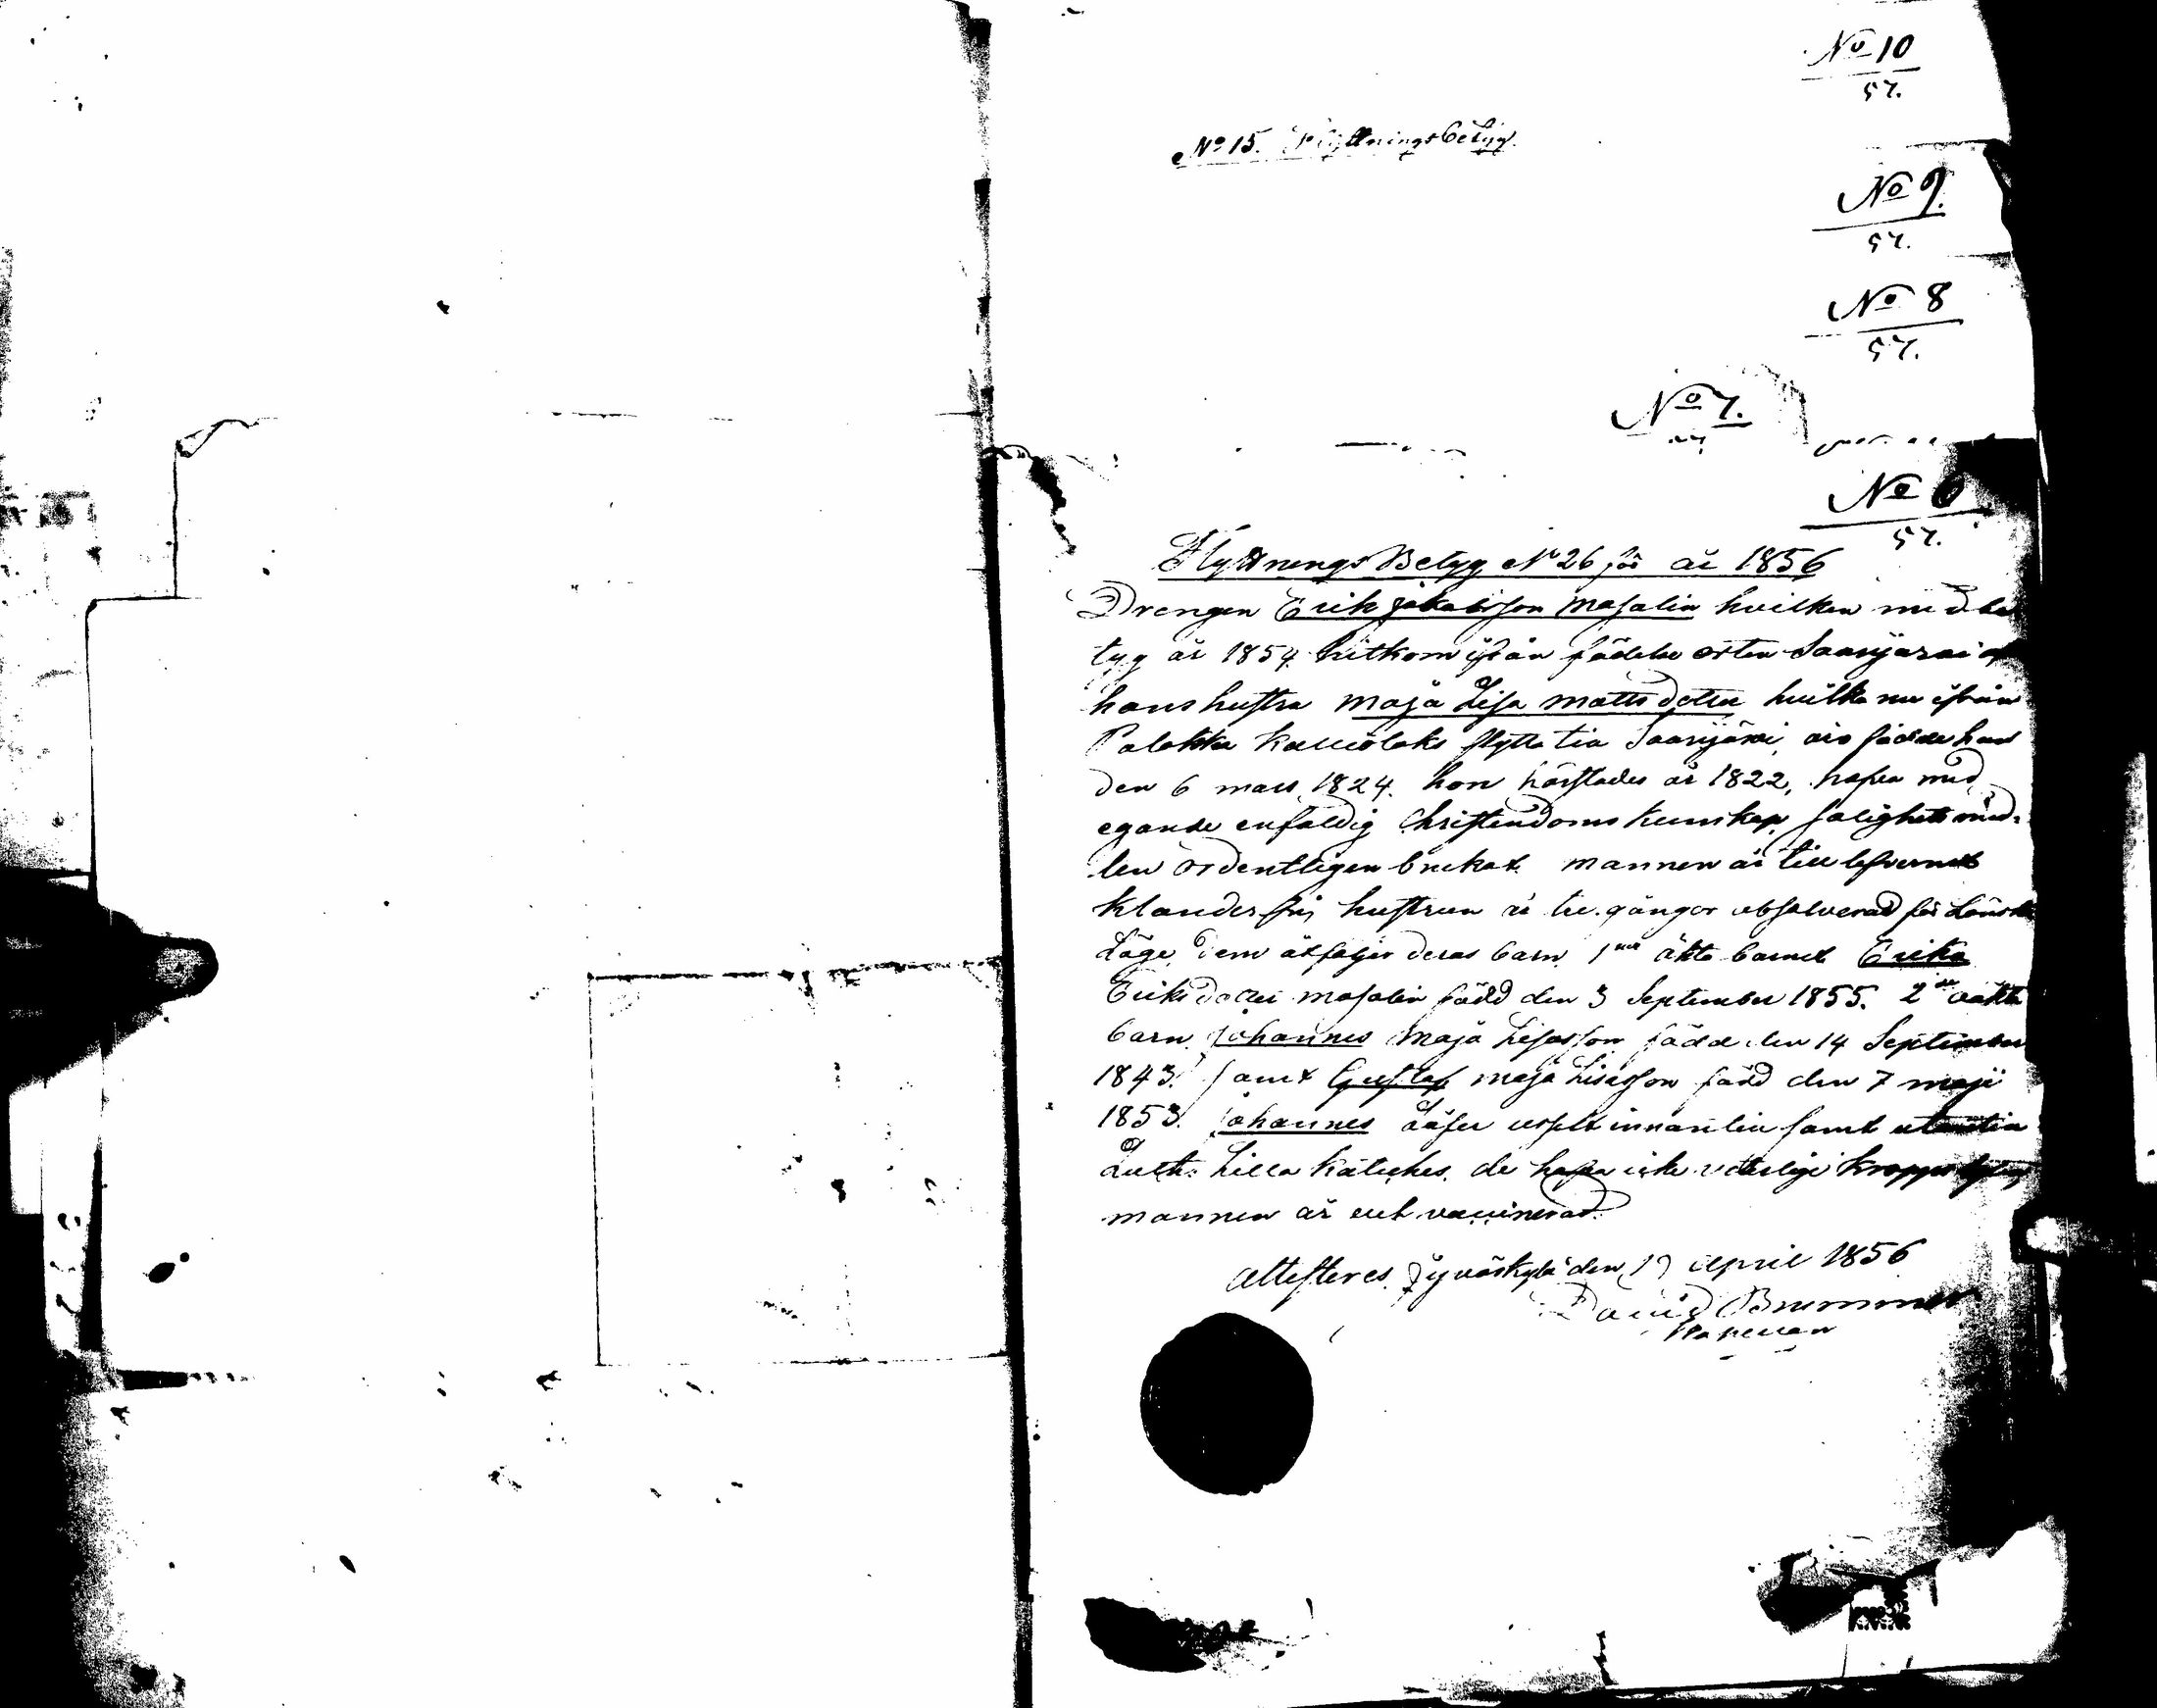 No 10
57.
No 15. Flyttningsbetyg.
No 9.
57.
No 8
57.
No 7.
No 6
57.
Flyttnings Betyg No 26 för år 1856
Drengen Erik Jakobsson Masalin hvilken med be
tyg år 1854 hitkom ifrån födelse orten Saarijärvi
hans hustru Maja Lisa Mattsdotter hvilka nu ifrån
Palokka flytta till Saarijärvi, äro födde han
den 6 mars 1824. hon härstädes år 1822, hafva med
egande enfaldig Christendoms kunskap salighets med-
len ordentligen brukat. mannen är till lefvernet
klanderfri, hustrun är tre gångor absolverad för Lönska
Läge. dem åtföljer deras barn. 1o äkta barnet Erika
Eriksdotter Masalin född den 3 September 1855. 2o oäkta
barn. Johannes Maja Lisasson född den 14 September
1843. samt Gustaf Maja Lisasson född den 7 maji
1853. Johannes läser innantill samt utantill
Luth: Lilla Katekes. de hafva icke
mannen är vaccinerad.
Attesteres. Jyväskylä den 17 April 1856
David Brummer